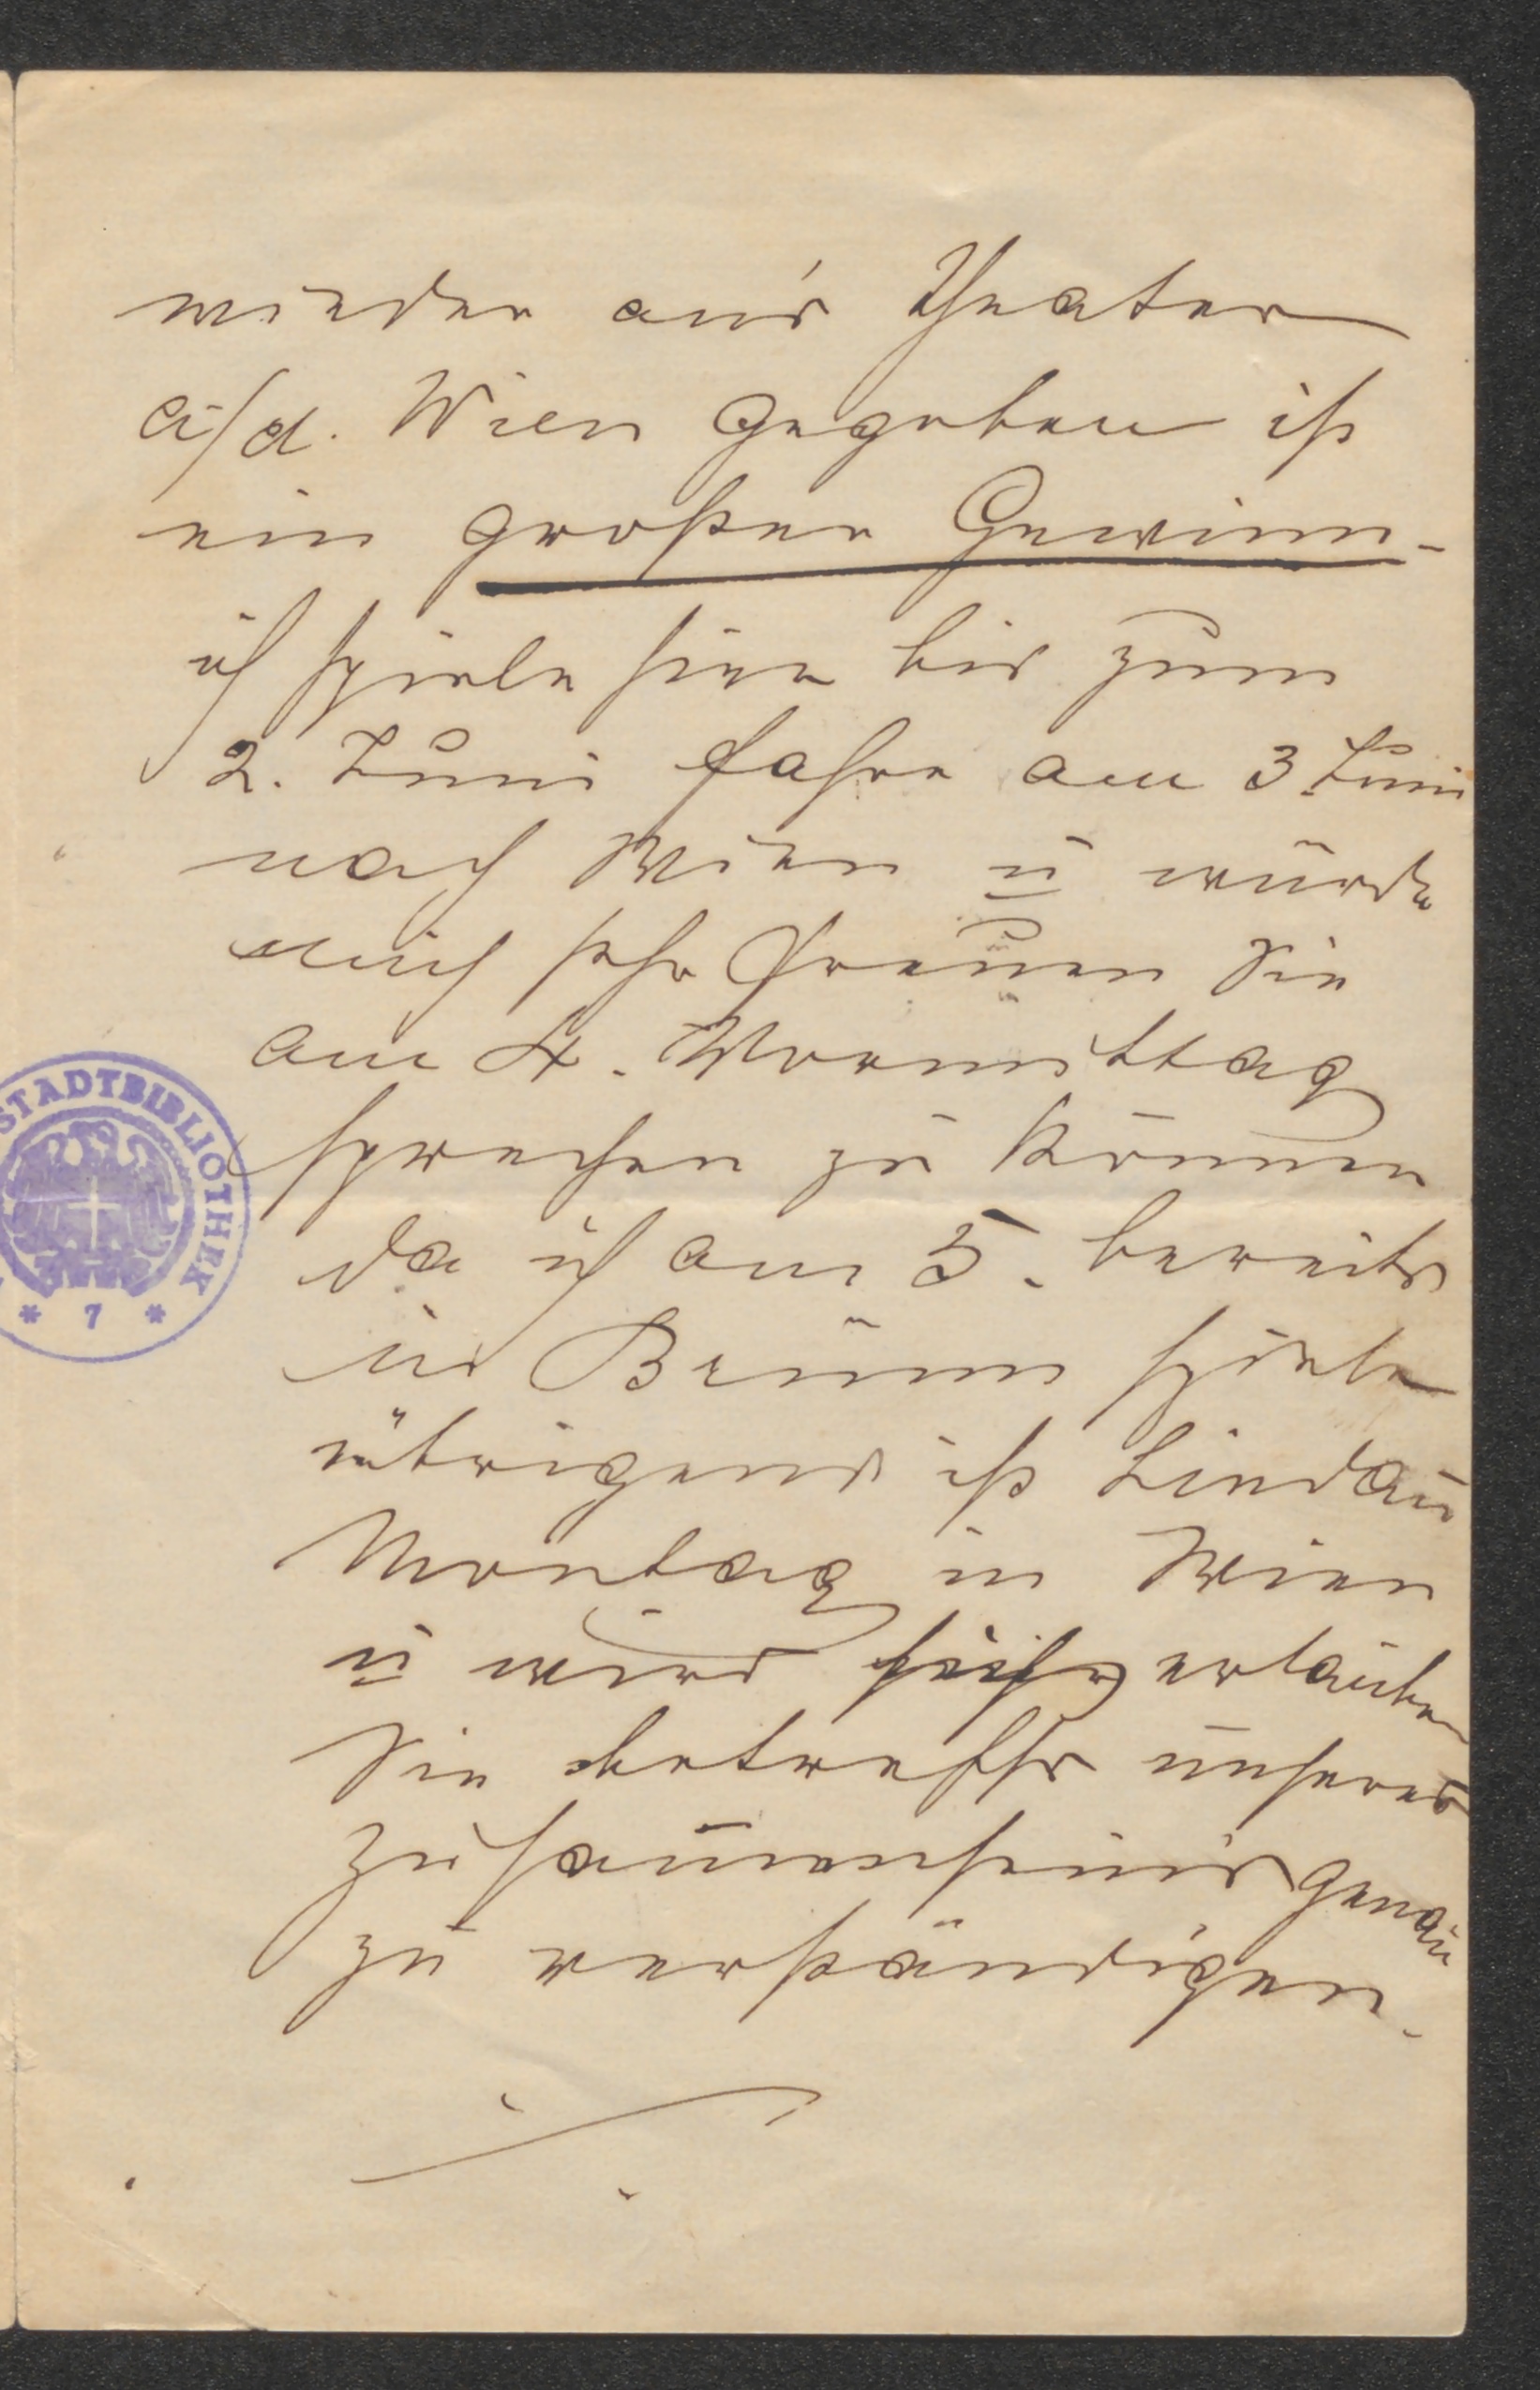 wieder an's Theater
a/d. Wien gegeben ist
ein großer Gewinn-
ich spiele hier bis zum
2. Juni fahre am 3. Juni
nach Wien u würde
mich sehr freuen Sie
am 4. Vormittag
sprechen zu können
da ich am 5. bereits
in Brünn spiele
übrigens ist Lindau
Montag in Wien
u wird sich erlauben
Sie betreffs unseres
Zusam̅enseins genau
zu verständigen.
STADTBIBLIOTHEK
* 7 *